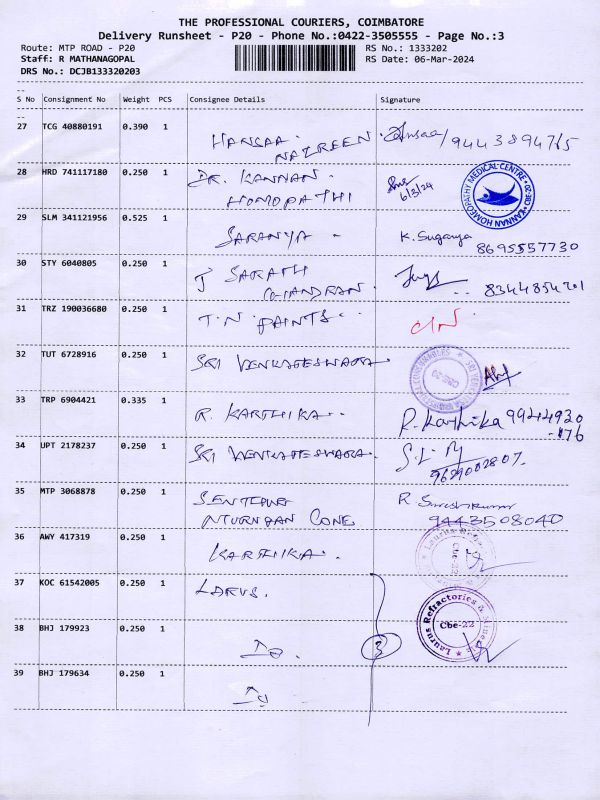 THE PROFESSIONAL COURIERS, COIMBATORE
Delivery Runsheet - P20 - Phone No.:0422-3505555 - Page No.:3
Route: MTP ROAD - P20 RS No.: 1333202
Staff: R MATHANAGOPAL RS Date: 06-Mar-2024
DRS No.: DCJB133320203
S No Consignment No Weight PCS Consignee Details Signature
27 TCG 40880191 0.390 1 HANSAA NAZREEN
28 HRD 741117180 0.250 1 DR. KANNAN HOMOPATHI 6/3/24
KANNAN HOMEOPATHY MEDICAL CENTRE
29 SLM 341121956 0.525 1 SARANYA - K. Suganya 8695557730
30 STY 6040805 0.250 1 J SARATH CHANDRAN
31 TRZ 190036680 0.250 1 T.N PAINTS
32 TUT 6728916 0.250 1 SRI VENKATESWARA
33 TRP 6904421 0.335 1 R. KARTHIKA R. Karthika 99244930
-176
34 UPT 2178237 0.250 1 SRI VENKATESWARA 9629002807
35 MTP 3068878 0.250 1 R Sureshkumar
9443508040
36 AWY 417319 0.250 1 KARTHIKA
37 KOC 61542005 0.250 1 LARUS.
Laurus Refractories & Minerals
Cbe-22
38 BHJ 179923 0.250 1 3
39 BHJ 179634 0.250 1